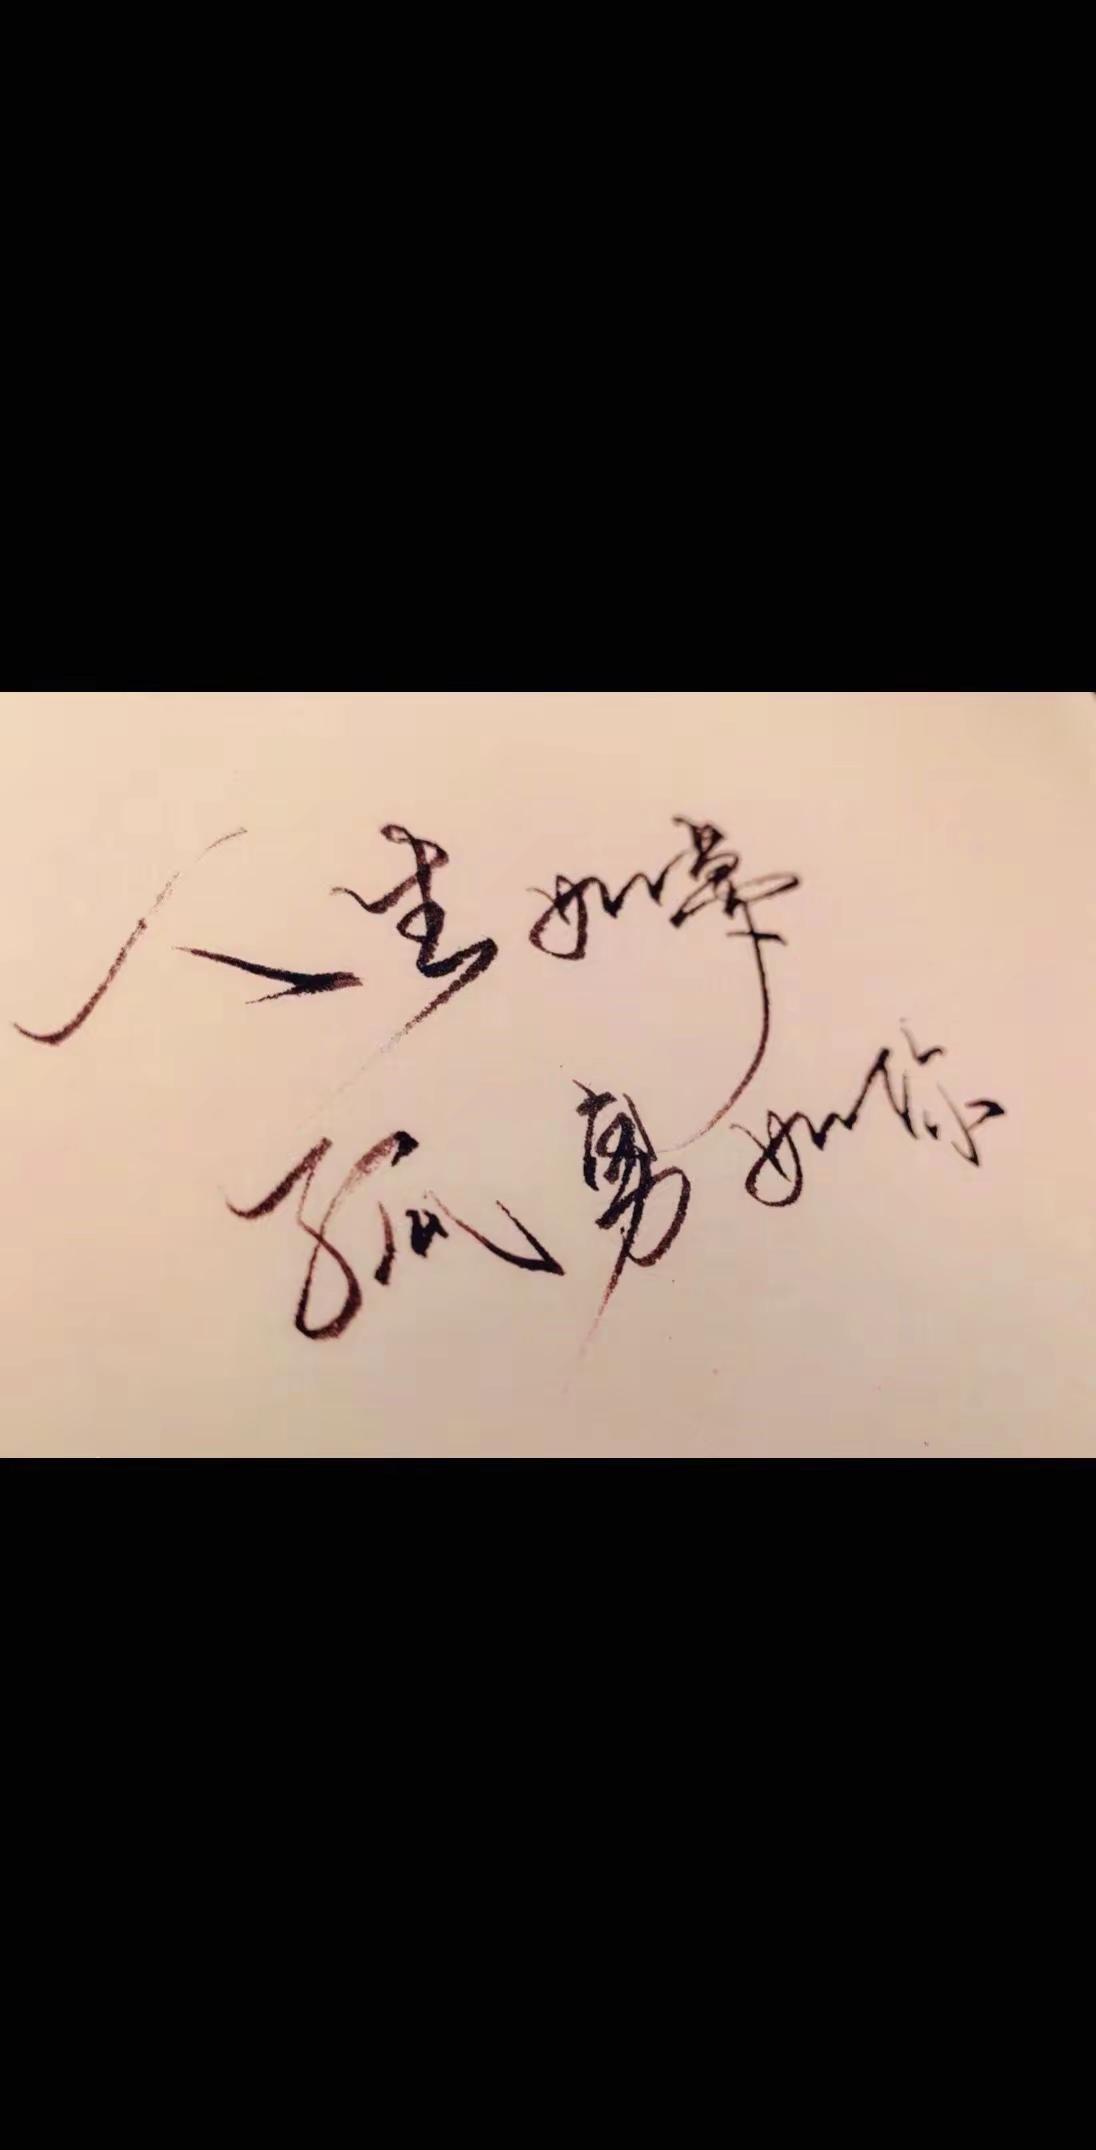 人生如常
孤勇如你